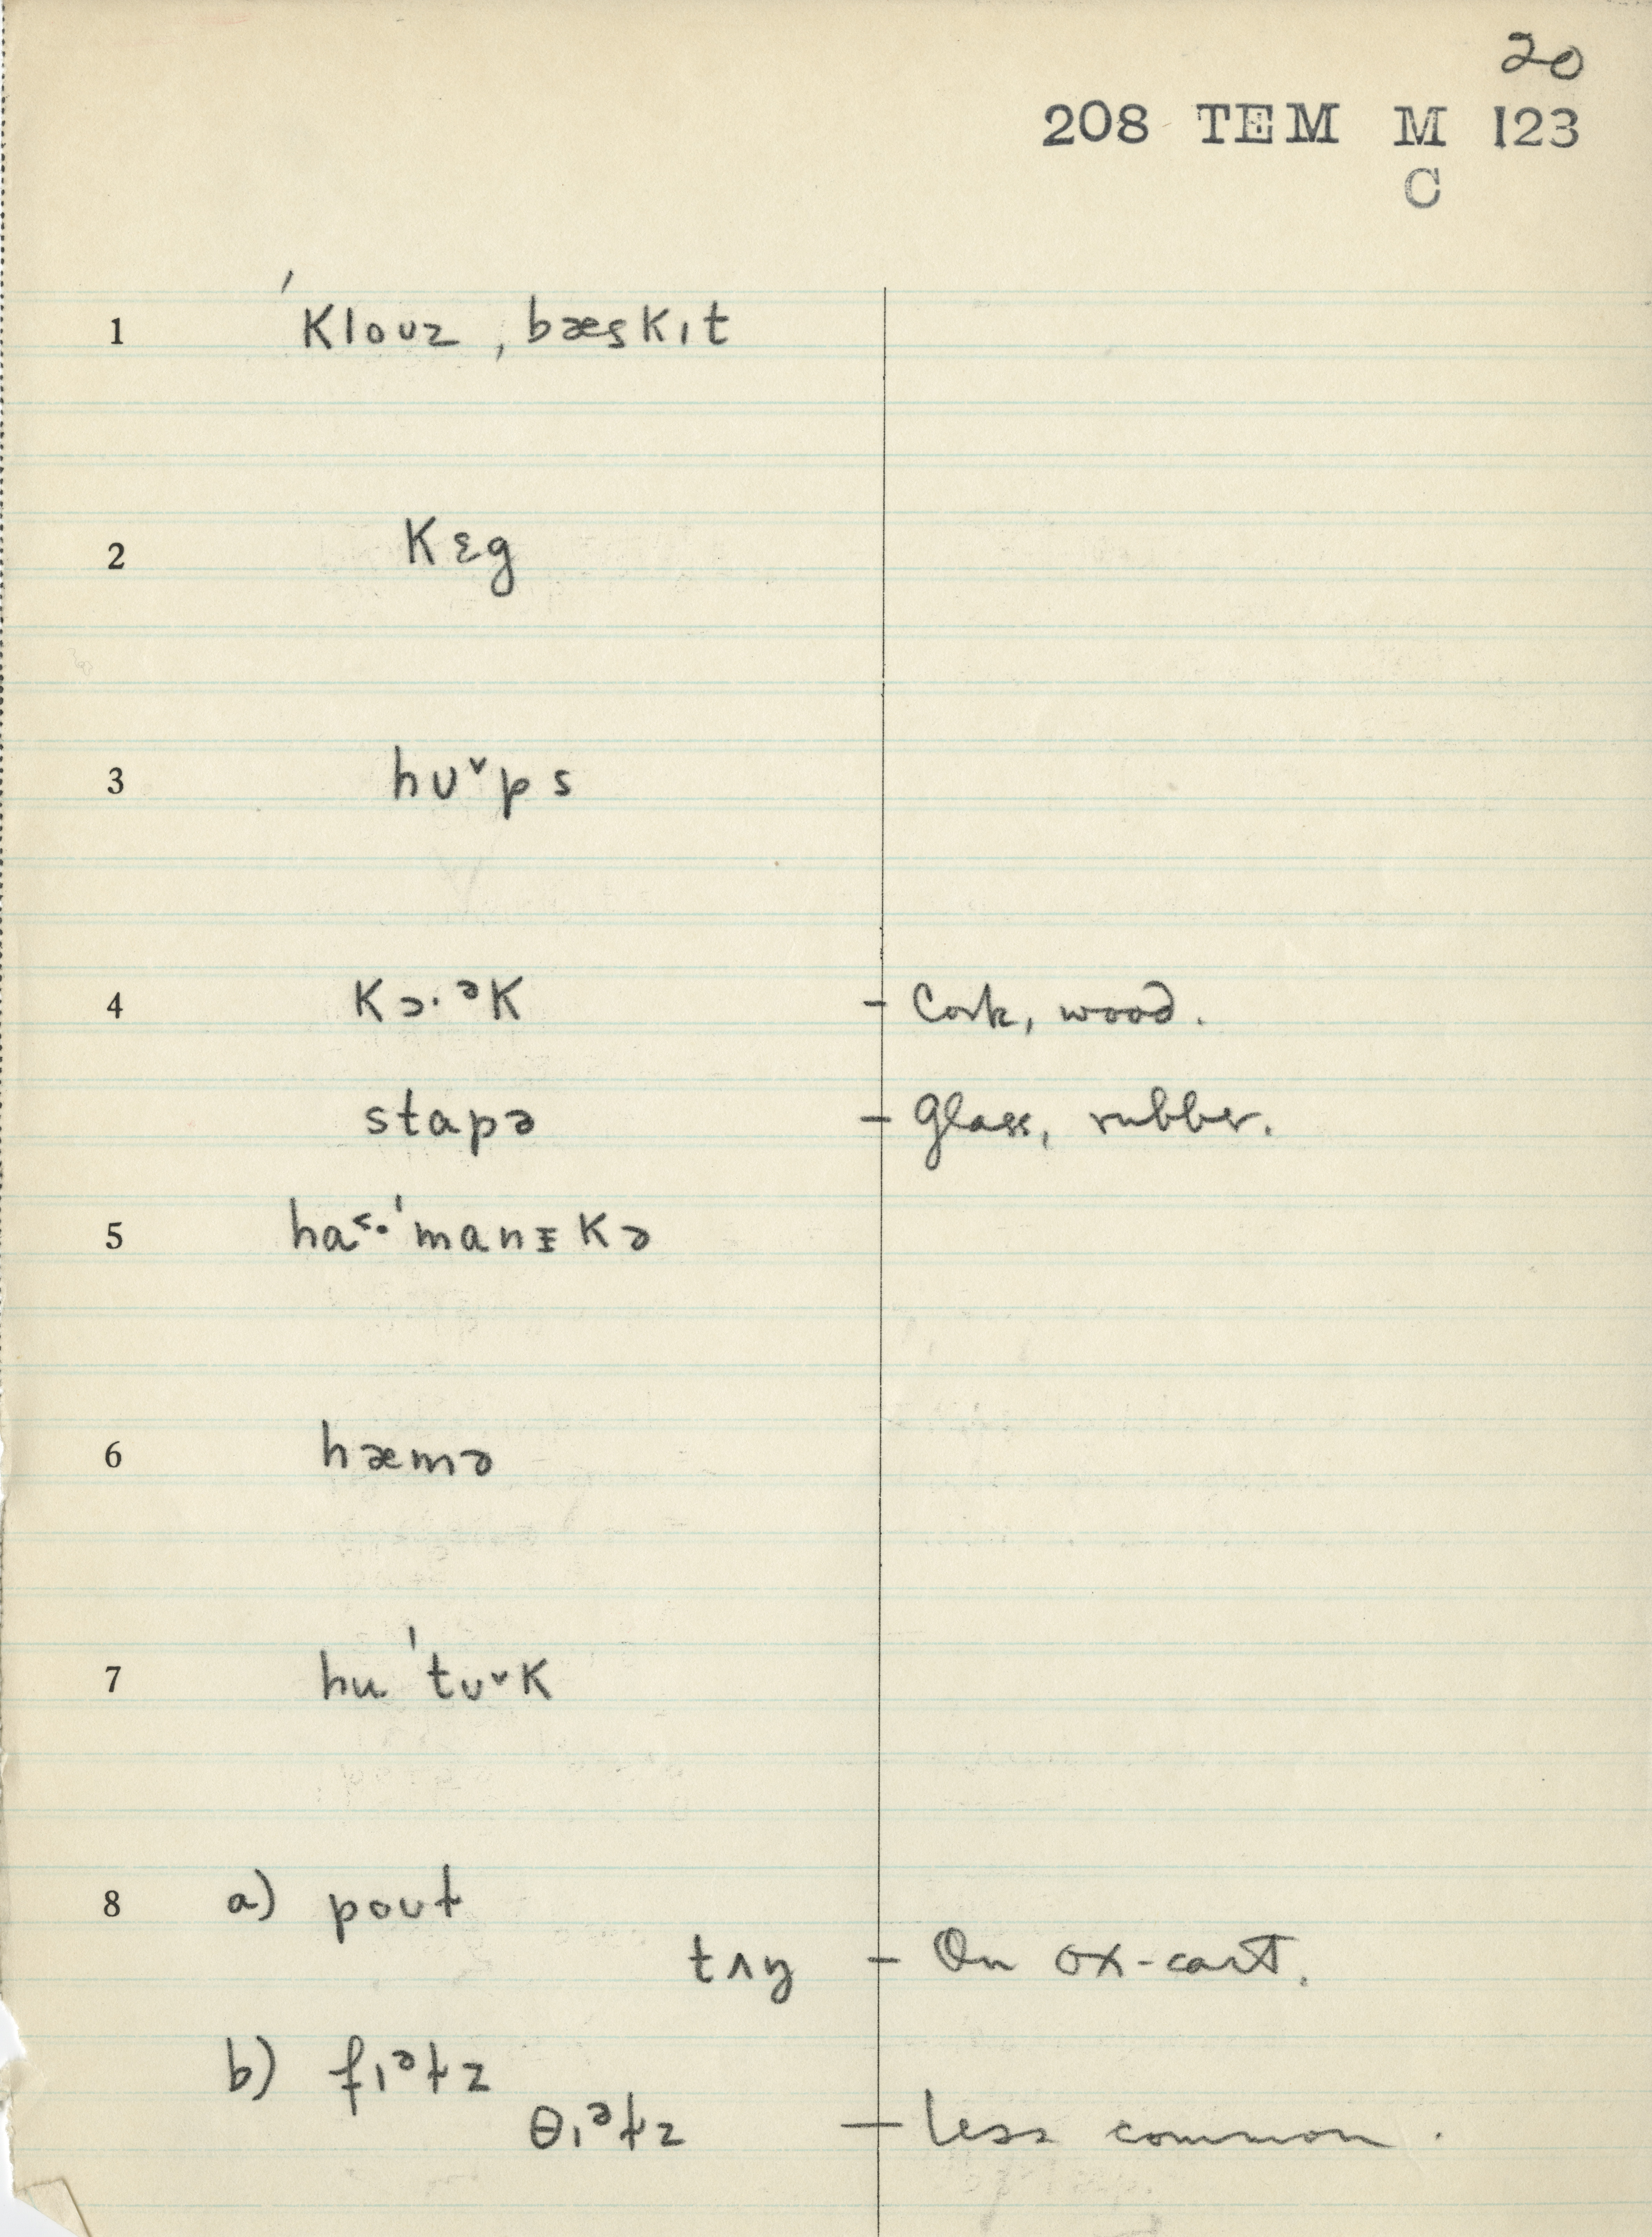 20
208 TEM M 123
C
1 ˈklouz ˌbæskɪt
2 kɛg
3 hʊ˅ps
4 kɔ·ᵊk – Cork, wood.
stapə – glass, rubber.
5 ha˂·ˈmanɪkə
6 hæmə
7 huˈtʊ˅k
8 a) poʊɫ
tʌŋ – On ox-cart.
b) fɪᵊɫz
θɪᵊɫz – less common.